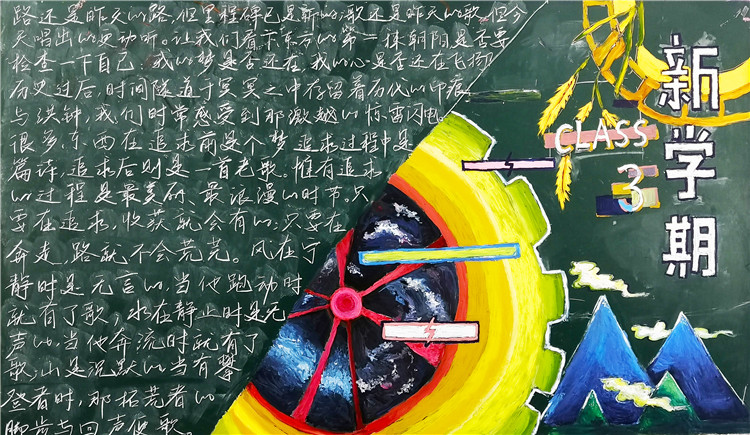 路还是昨天的路,但里程碑已是新的;歌还是昨天的歌,但今
天唱出的更动听。让我们看东方的第一抹朝阳是否要
检查一下自己,我的梦是否还在,我的心是否还在飞扬
历史过后,时间隧道于冥冥之中存留着历代的印痕
与洪钟,我们时常感受到那激越的惊雷闪电。
很多东西在追求前是个梦,追求过程中是
篇诗,追求后则是一首老歌。惟有追求
的过程是最美丽、最浪漫的时节。只
要在追求,收获就会有的;只要在
奔走,路就不会荒芜。风在宁
静时是无言的,当他跑动时
就有了歌;水在静止时是无
声的,当他奔流时就有了
歌;山是沉默的,当有攀
登者时,那拓荒者的
脚步与回声便歌。
新学期
CLASS
3